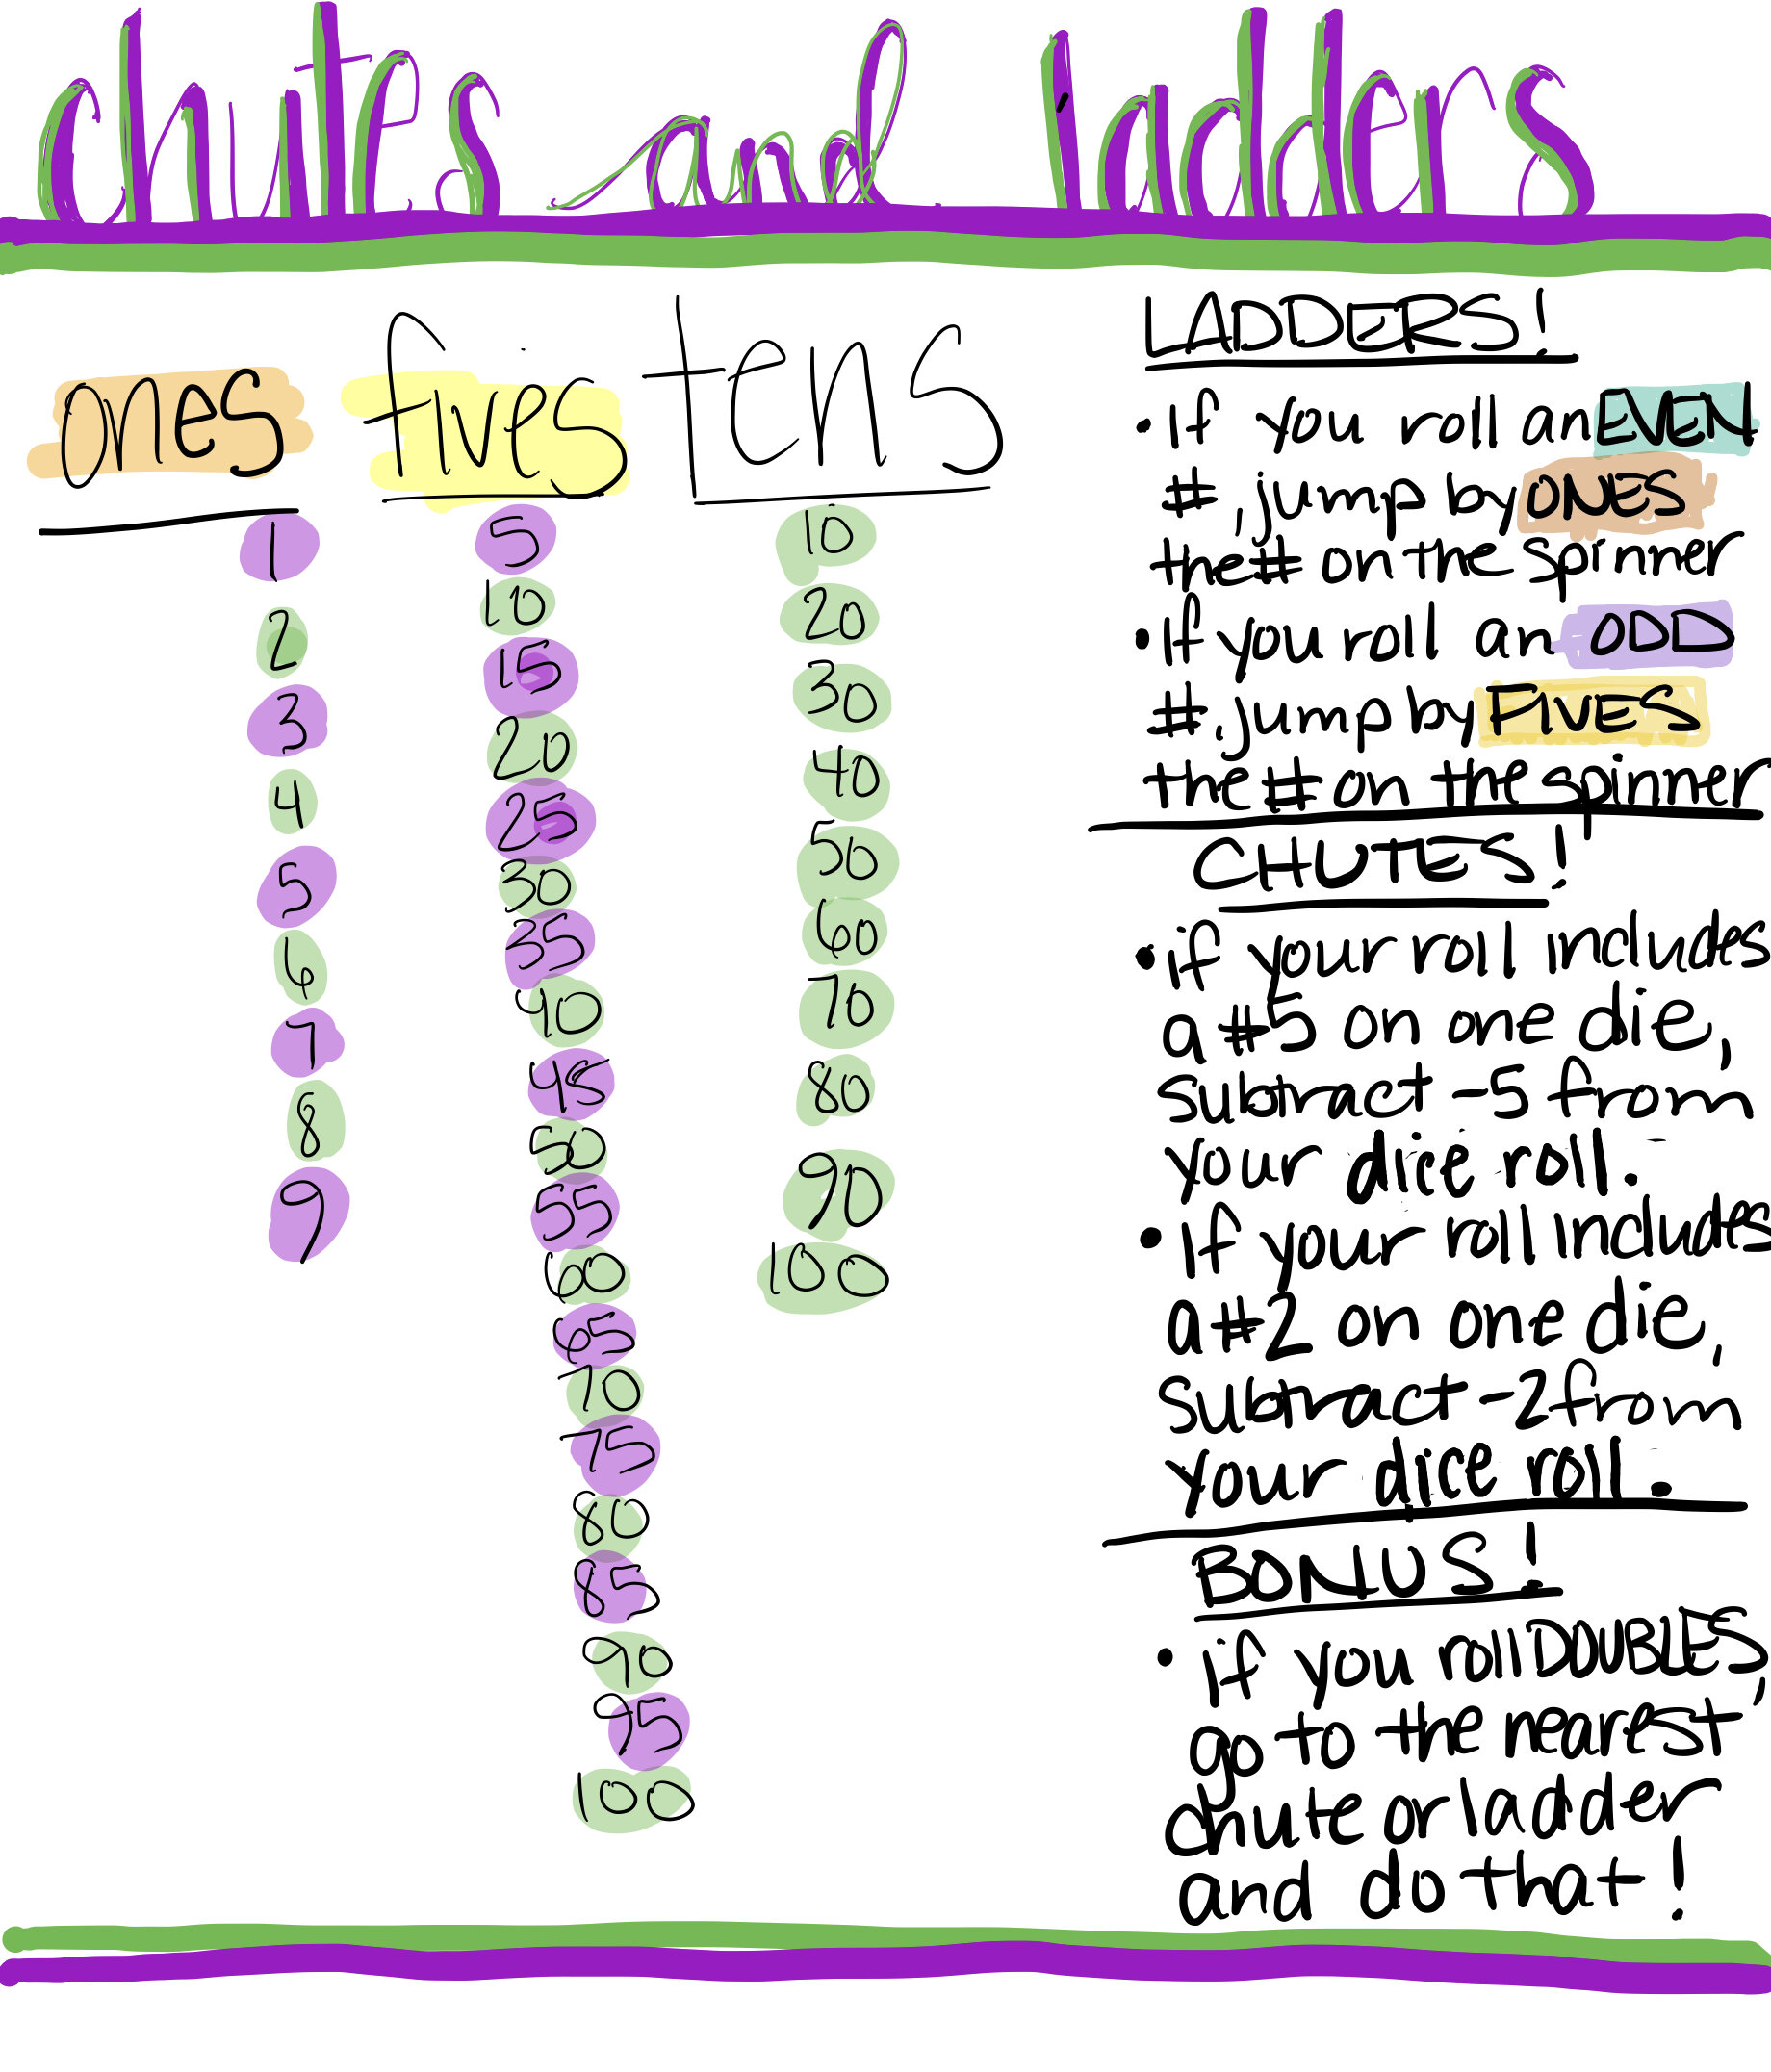 chutes and ladders
ones
1
2
3
4
5
6
7
8
9
fives
5
10
15
20
25
30
35
40
45
50
55
60
65
70
75
80
85
90
95
100
tens
10
20
30
40
50
60
70
80
90
100
LADDERS!
• If you roll an EVEN
#, jump by ONES
the # on the spinner
• If you roll an ODD
#, jump by FIVES
the # on the spinner
CHUTES!
• if your roll includes
a #5 on one die,
subtract -5 from
your dice roll.
• if your roll includes
a #2 on one die,
subtract -2 from
your dice roll.
BONUS!
• if you roll DOUBLES,
go to the nearest
chute or ladder
and do that!